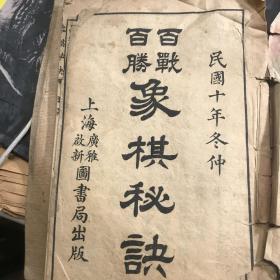 民國十年冬仲
百戰
百勝
象棋秘訣
上海廣雅啟新圖書局出版